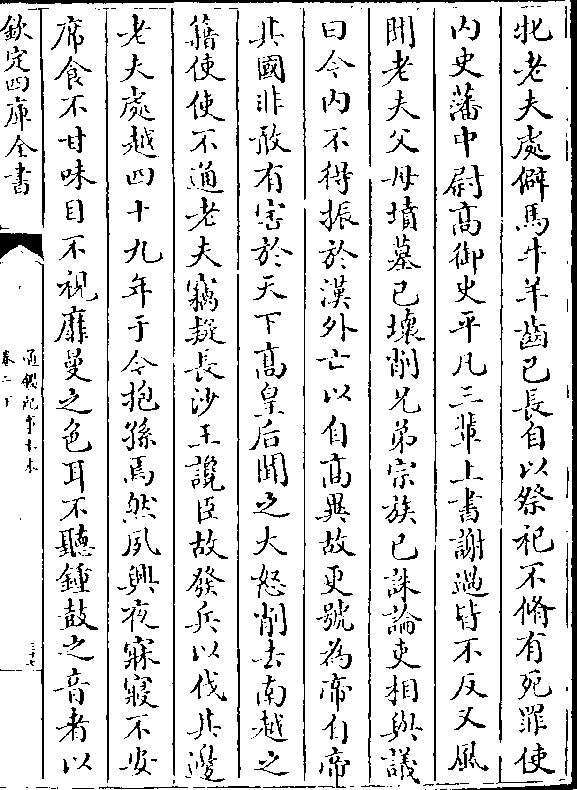 牝老夫處僻馬牛羊齒已長自以祭祀不脩有死罪使
内史藩中尉髙御史平凡三輩上書謝過皆不反又風
聞老夫父母墳墓已壞削兄弟宗族已誅論吏相與議
曰今内不得振於漢外亡以自髙異故更號為帝自帝
其國非敢有害於天下髙皇后聞之大怒削去南越之
籍使使不通老夫竊疑長沙王讒臣故發兵以伐其邊
老夫處越四十九年于今抱孫焉然夙興夜寐寢不安
席食不甘味目不視靡曼之色耳不聽鍾鼓之音者以
欽定四庫全書
通鑑紀事本末
卷二下